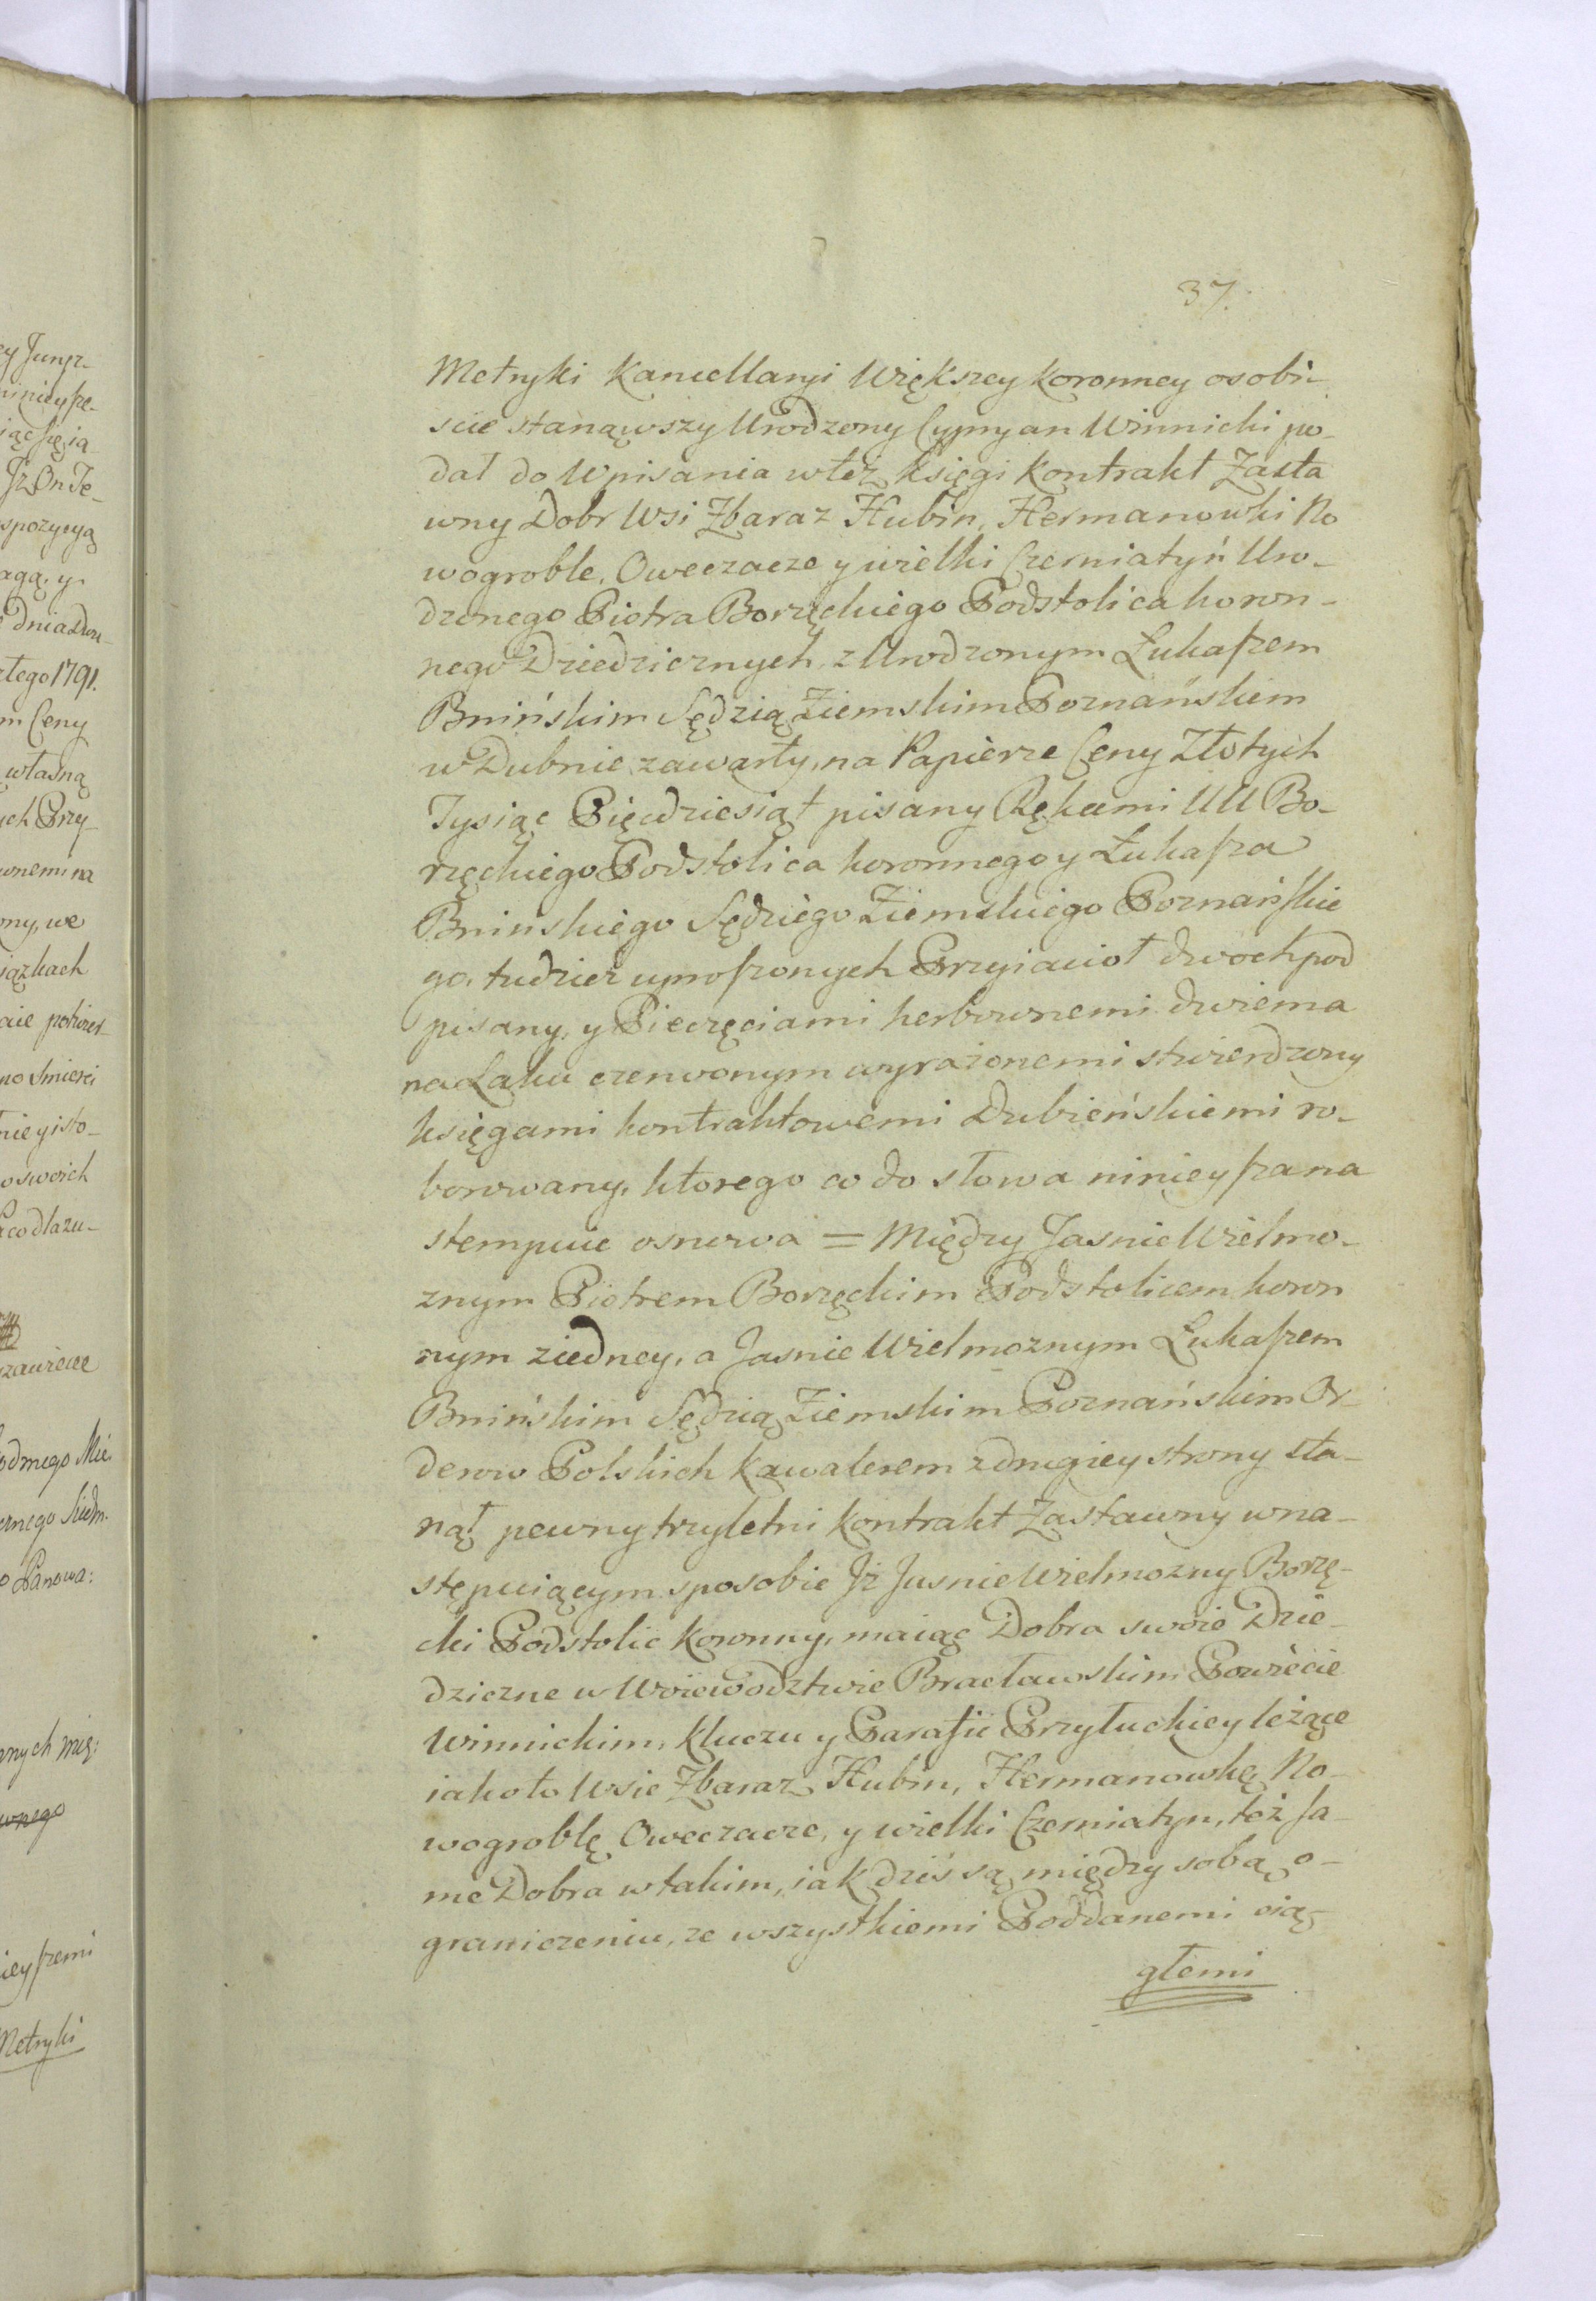 37.
Metryki Kancellaryi Większey Koronney osobi-
scie stanąwszy Urodzony Cypryan Winnicki po-
dał do Wpisania w też księgi Kontrakt Zasta
wny Dobr Wsi Zbaraz Hubin, Hermanowki No
wogroble, Oweczacze y wielki Czerniatyń Uro-
dzonego Piotra Borzęckiego Podstolica koron-
nego Dziedzicznych z Urodzonym Łukaszem
Bnińskim Sędzią Ziemskim Poznańskiem
w Dubnie zawarty, na Papierze Ceny Złotych
Tysiąc Pięćdziesiąt pisany Rękami UU Bo-
rzęckiego Podstolica koronnego y Łukasza
Bninskiego Sędziego Ziemskiego Poznańskie
go, tudziez uproszonych Przyiaciół dwoch pod
pisany, y Pieczęciami herbownemi dwiema
na Laku czerwonym wyrażonemi stwierdzony
księgami kontraktowemi Dubieńskiemi ro-
borowany, ktorego co do słowa ninieysza na
stempuie osnowa = Między Jasnie Wielmo-
znym Piotrem Borzęckim Podstolicem koron
nym ziedney, a Jasnie Wielmoznym Łukaszem
Bnińskim Sędzią Ziemskim Poznańskim Or-
derow Polskich Kawalerem zdrugiey strony sta-
nął pewny trzyletni Kontrakt Zastawny wna-
stępuiącym sposobie Jż Jasnie Wielmozny Borzę-
cki Podstolic Koronny, maiąc Dobra swoie Dzie-
dziczne w Woiewodztwie Bracławskim Powiecie
Winnickim, Kluczu y Parafii Przyłuckiey leżące
iako to Wsie Zbaraz, Hubin, Hermanowkę, No-
wogroblę Oweczacze, y wielki Czerniatyn, też sa-
me Dobra w takim, iak dziś są między sobą o-
graniczeniu, ze wszystkiemi Poddanemi cią-
głemi